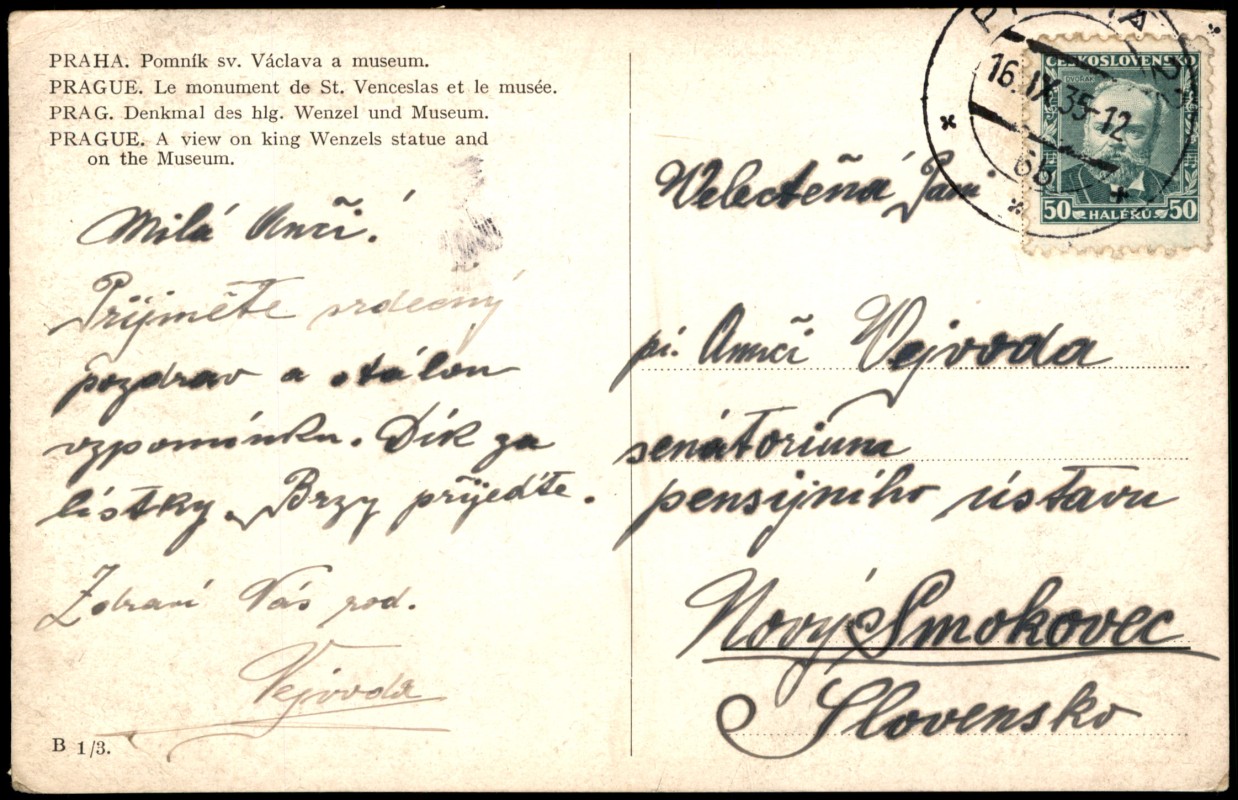 PRAHA. Pomník sv. Václava a museum.
PRAGUE. Le monument de St. Venceslas et le musée.
PRAG. Denkmal des hlg. Wenzel und Museum.
PRAGUE. A view on king Wenzels statue and
on the Museum.
Milá Anči!
Přijměte srdecný
pozdrav a stálou
vzpomínku. Dík za
lístky. Brzy přijeďte.
Zdraví Vás rod.
Vejvoda
B 1/3.
16.IX.35-12
6b
ČESKOSLOVENSKO
DVOŘÁK
50 HALÉŘŮ 50
Velectěná Paní
pí. Anči Vejvoda
senátorium
pensijního ústavu
Nový Smokovec
Slovensko